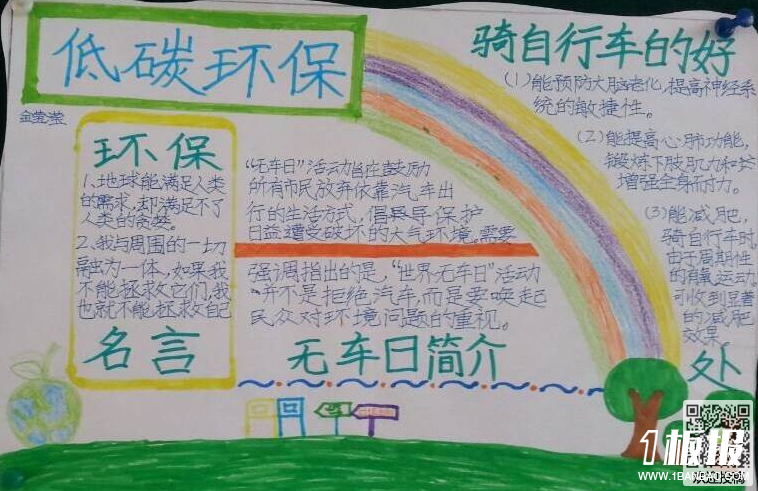 低碳环保
金莹滢
环保
1、地球能满足人类
的需求，却满足不了
人类的贪婪。
2、我与周围的一切
融为一体，如果我
不能拯救它们，我
也就不能拯救自己
名言
“无车日”活动旨在鼓励
所有市民放弃依靠汽车出
行的生活方式，倡导保护
日益遭受破坏的大气环境。需要
强调指出的是，“世界无车日”活动
并不是拒绝汽车，而是要唤起
民众对环境问题的重视。
无车日简介
骑自行车的好
（1）能预防大脑老化，提高神经系
统的敏捷性。
（2）能提高心肺功能，
锻炼下肢肌力和
增强全身耐力。
（3）能减肥，
骑自行车时，
由于周期性
的有氧运动，
可收到显著
的减肥
效果。
处
1板报
WWW.1BANBAO.COM
欢迎投稿